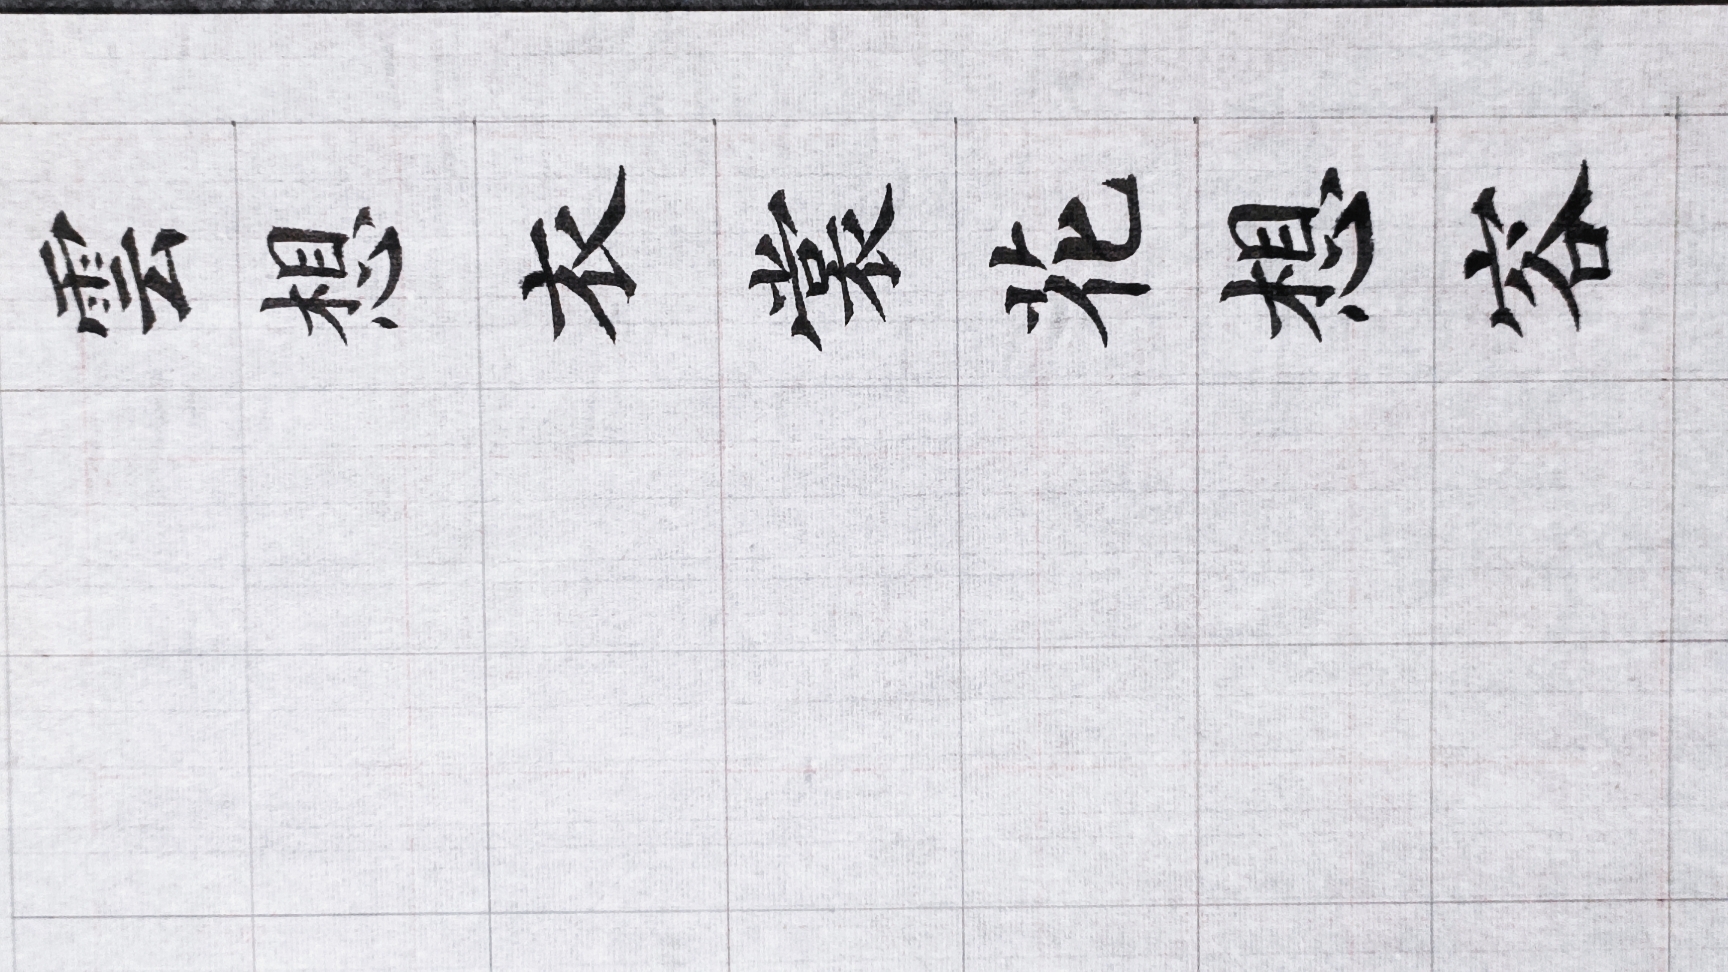 雲想衣裳花想容